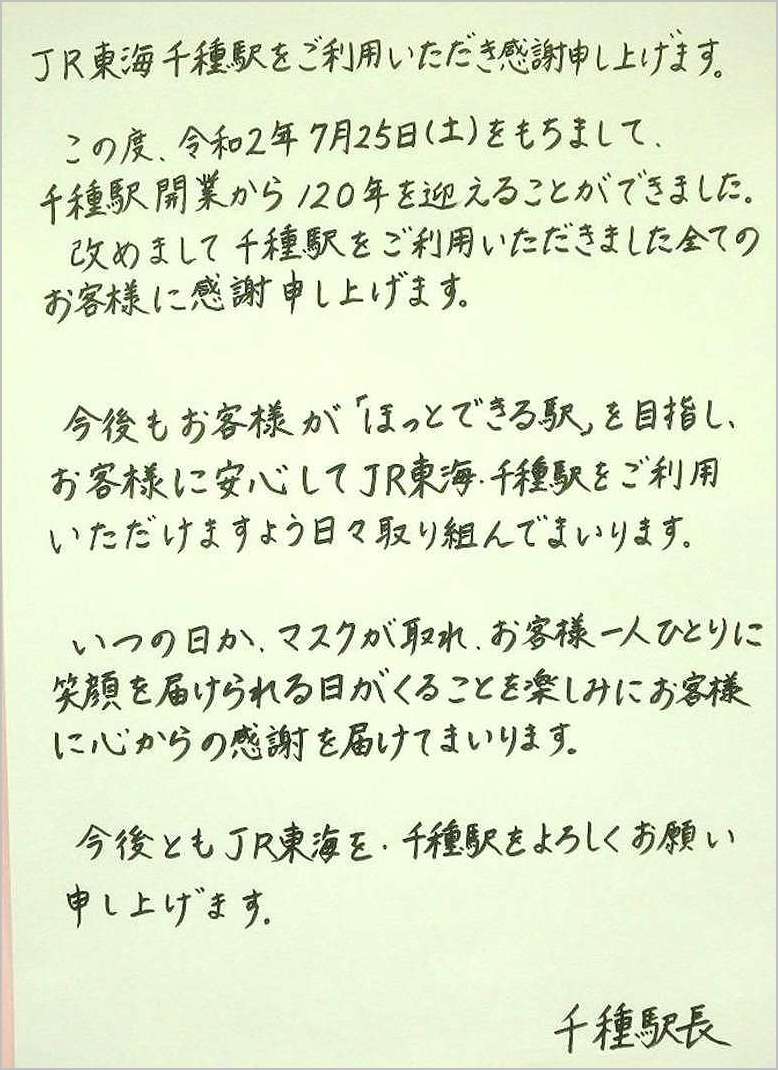 JR東海千種駅をご利用いただき感謝申し上げます。
この度、令和2年7月25日(土)をもちまして、
千種駅開業から120年を迎えることができました。
改めまして千種駅をご利用いただきました全ての
お客様に感謝申し上げます。
今後もお客様が「ほっとできる駅」を目指し、
お客様に安心してJR東海・千種駅をご利用
いただけますよう日々取り組んでまいります。
いつの日か、マスクが取れ、お客様一人ひとりに
笑顔を届けられる日がくることを楽しみにお客様
に心からの感謝を届けてまいります。
今後ともJR東海を・千種駅をよろしくお願い
申し上げます。
千種駅長